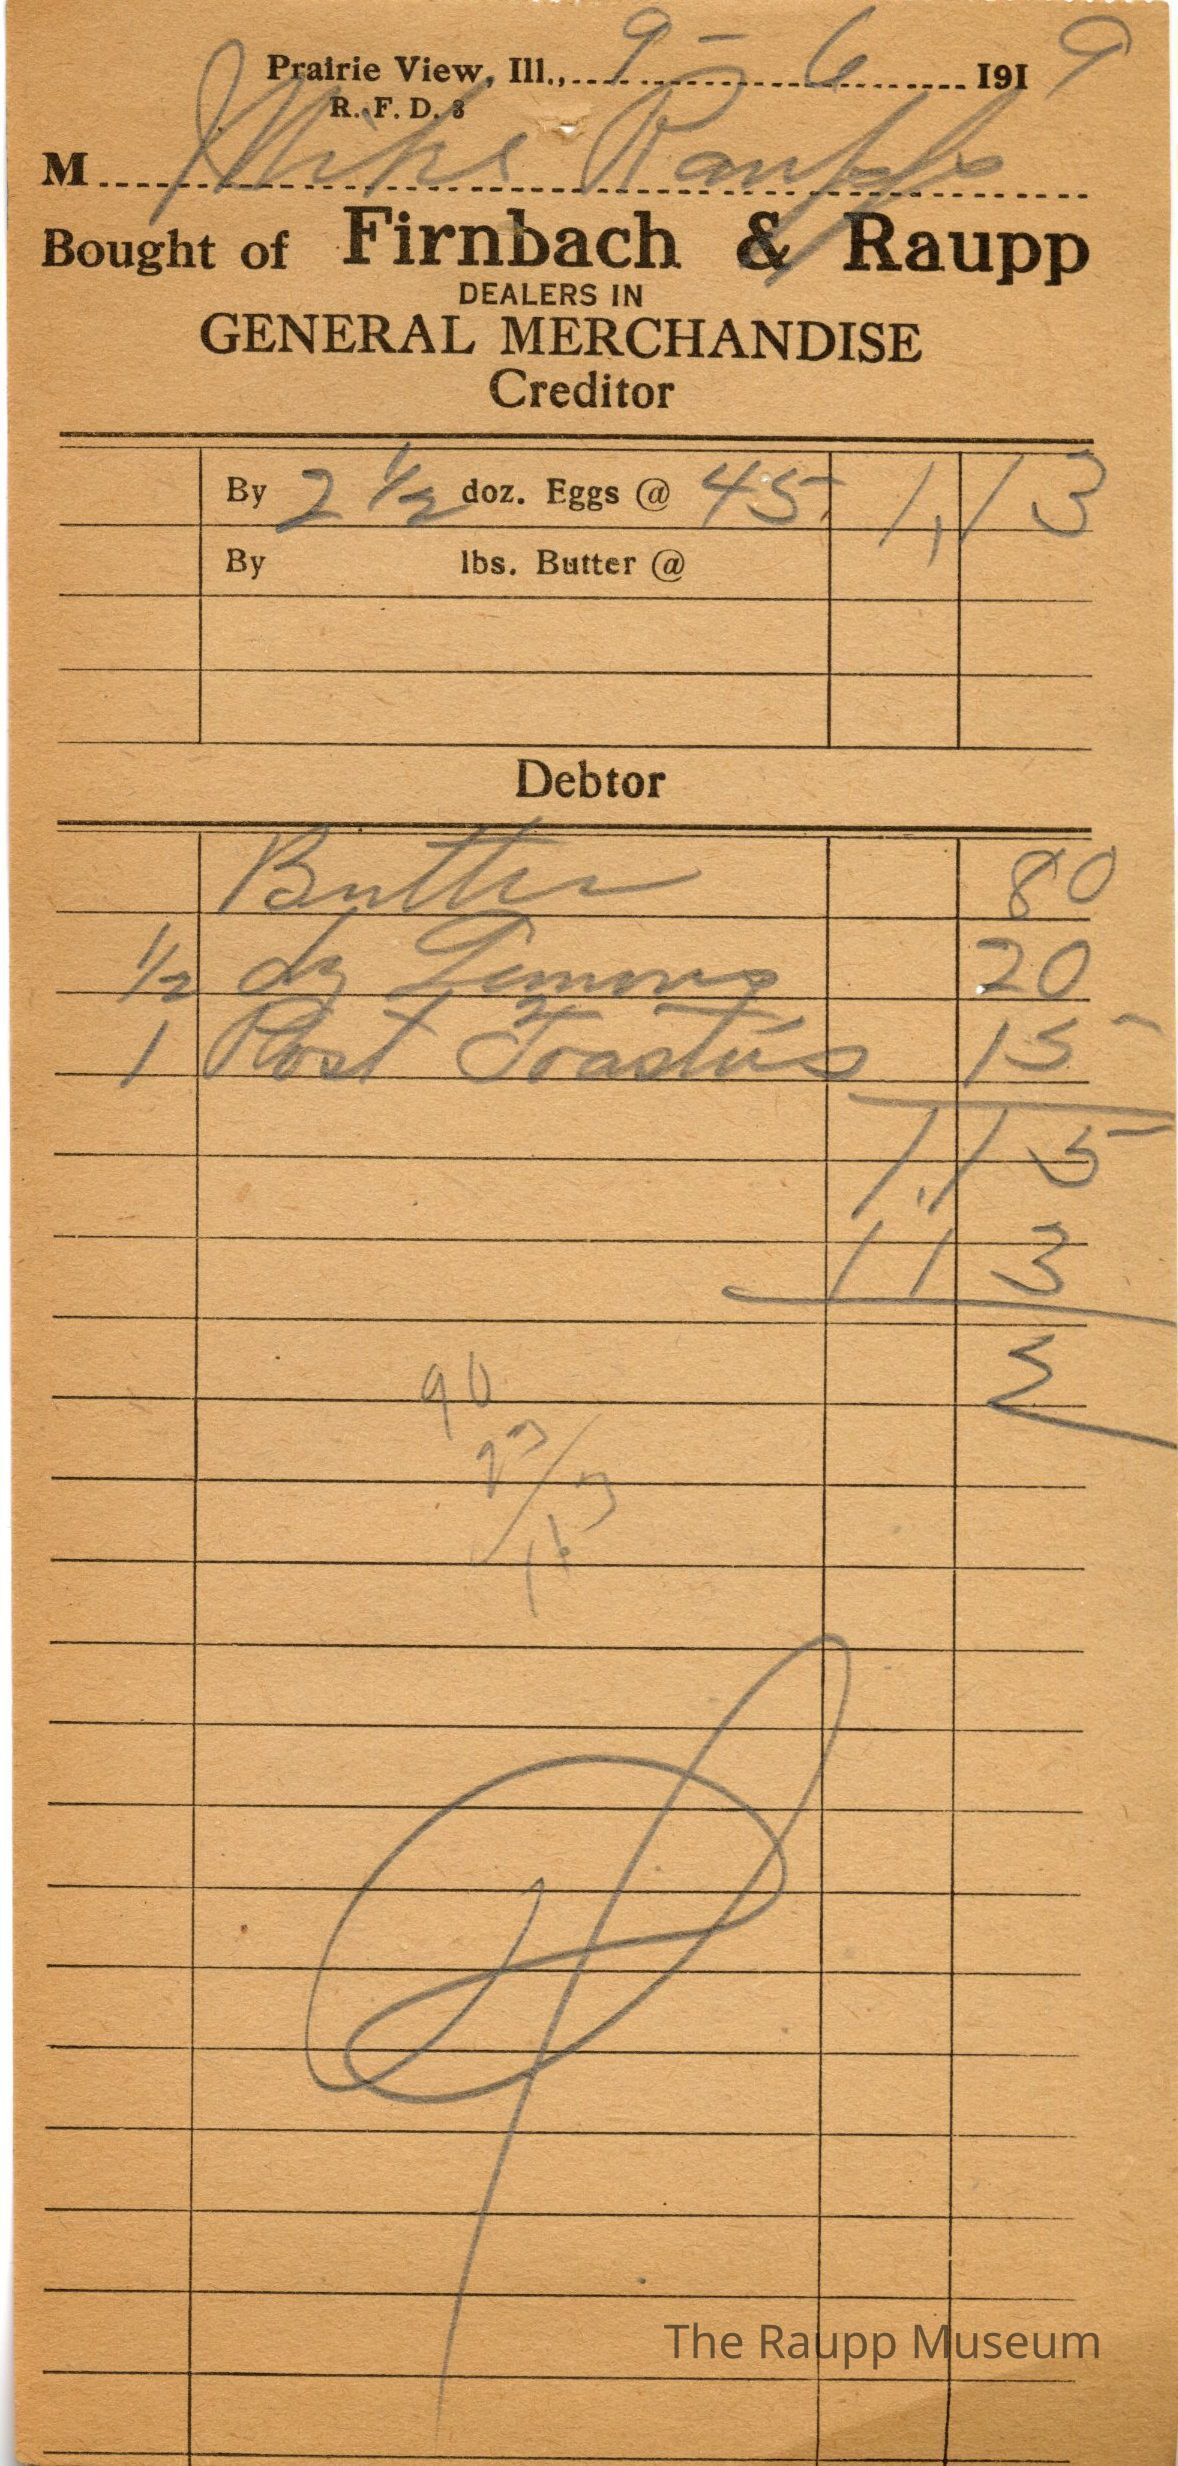 Prairie View, Ill., 9-6 1919
R. F. D. 3
M Mike Raupp
Bought of Firnbach & Raupp
DEALERS IN
GENERAL MERCHANDISE
Creditor
By 2 1/2 doz. Eggs @ 45 1,13
By lbs. Butter @
Debtor
Butter 80
1/2 dz Lemons 20
1 Post Toasties 15
1.15
113
2
90
23
1.13
The Raupp Museum